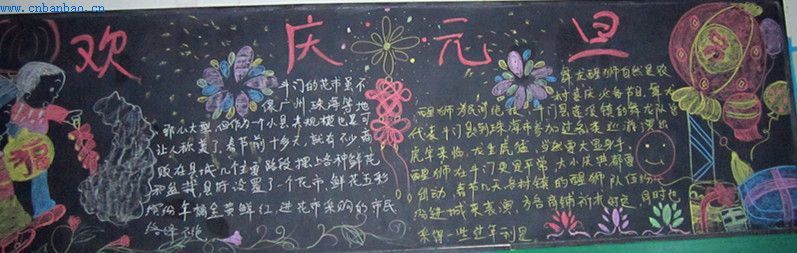 www.cnbanbao.cn
欢庆元旦
斗门的花市虽不
像广州、珠海等地
那么大型,但作为一个小县,其规模也是可
让人称羡了。春节前十多天,就有不少商
贩在县城几个主要路段摆上各种鲜花
和盆栽,县府设置了一个花市,鲜花五彩
缤纷,年橘金黄鲜红,进花市采购的市民
络绎不绝。
舞龙醒狮自然是农
村喜庆必备节目,舞龙
醒狮为民间绝技,斗门县连续镇的舞龙队曾
代表斗门县到珠海市参加过大巡游演出
虎年来临,龙生虎猛,当然要大显身手。
醒狮在斗门更见平常,大小庆典都要
出动。春节几天,各村镇的醒狮队伍纷
纷进城来表演,为各商铺祈求好运,同时也
采得一些过年利是。
福